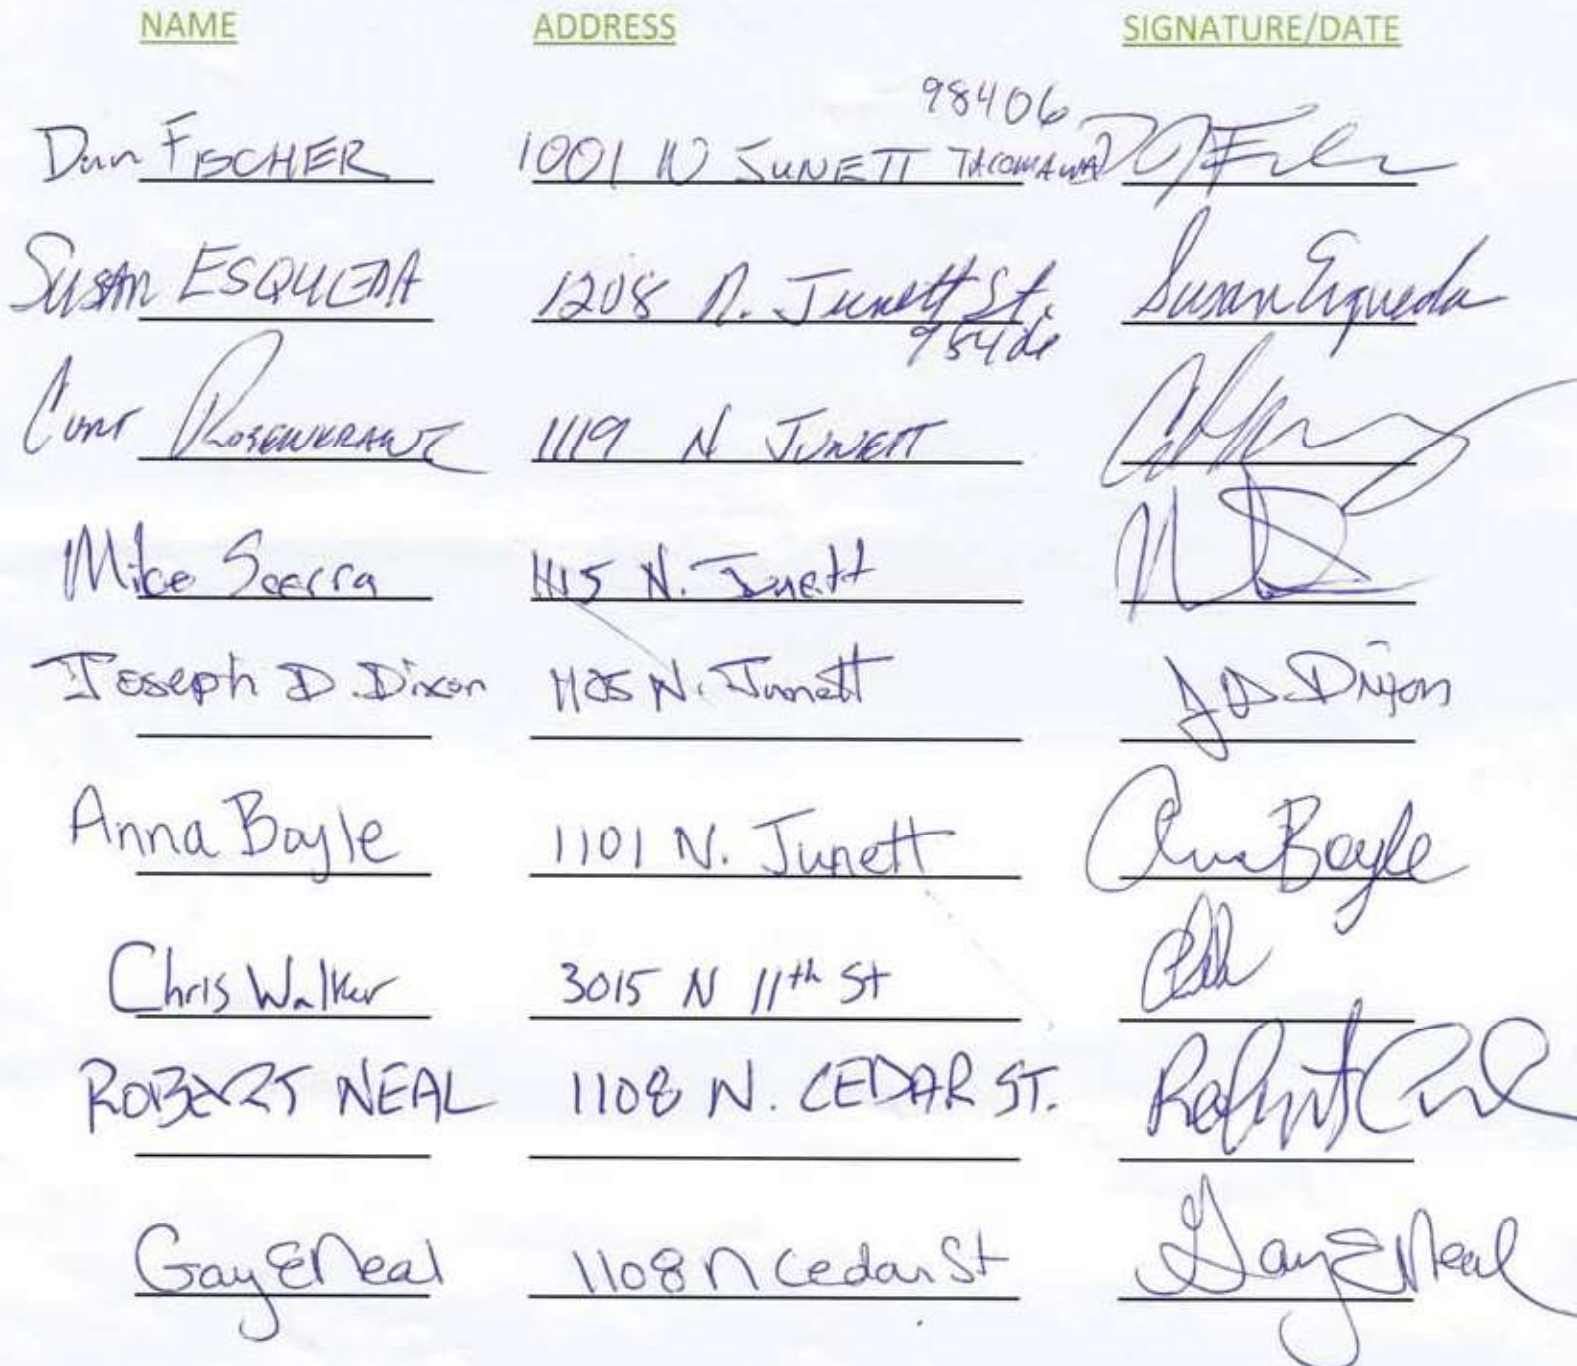 NAME ADDRESS SIGNATURE/DATE
98406
Dan FISCHER 1001 N JUNETT TACOMA WA
SUSAN ESQUEDA 1208 N. Junett St. Susan Esqueda
98406
Curt ROSENKRANZ 1119 N JUNETT
Mike 1115 N. Junett
Joseph D. Dixon 1125 N. Junett J D Dixon
Anna Boyle 1101 N. Junett Anna Boyle
Chris Walker 3015 N 11th St
ROBERT NEAL 1108 N. CEDAR ST. Robert
Gay E Neal 1108 N Cedar St Gay E Neal